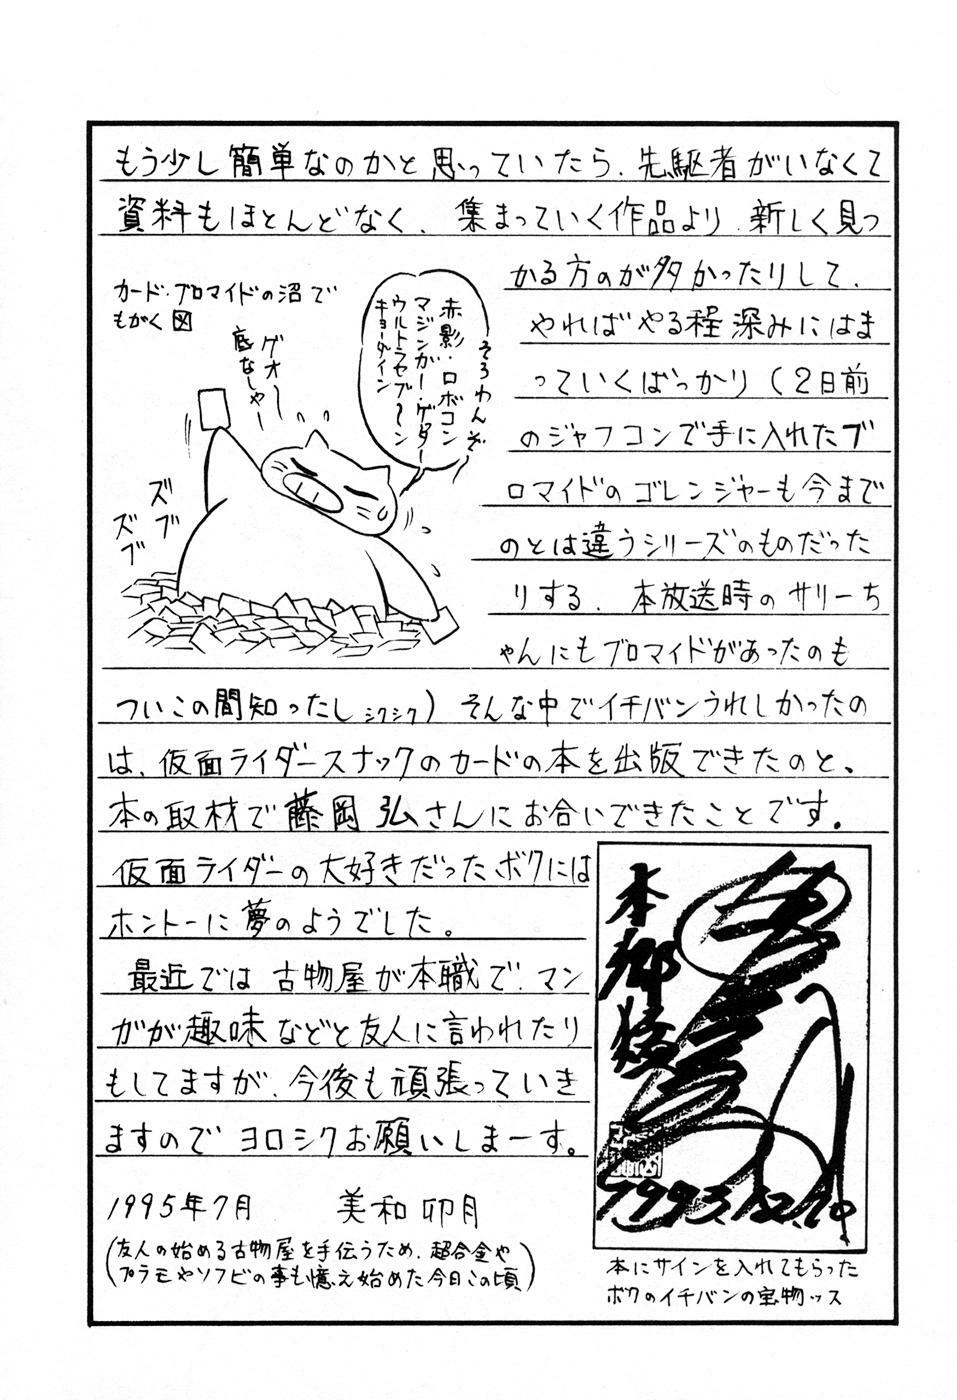 もう少し簡単なのかと思っていたら、先駆者がいなくて
資料もほとんどなく、集まっていく作品より、新しく見つ
かる方のが多かったりして、
やればやる程深みにはま
っていくばっかり(2日前
のジャフコンで手に入れたブ
ロマイドのゴレンジャーも今まで
のとは違うシリーズのものだった
りする、本放送時のサリーち
ゃんにもブロマイドがあったのも
ついこの間知ったし シクシク)そんな中でイチバンうれしかったの
は、仮面ライダースナックのカードの本を出版できたのと、
本の取材で藤岡弘さんにお合いできたことです。
仮面ライダーの大好きだったボクには
ホントーに夢のようでした。
最近では古物屋が本職で、マン
ガが趣味などと友人に言われたり
もしてますが、今後も頑張っていき
ますのでヨロシクお願いしまーす。
1995年7月 美和卯月
(友人の始める古物屋を手伝うため、超合金や
プラモやソフビの事も憶え始めた今日この頃)
カード・ブロマイドの沼で
もがく図
ゲオ〜
底なしゃー
そろわんぞ〜
赤影・ロボコン
マジンガー・ゲッター
ウルトラセブ〜ン
キョーダイン
ズブ
ズブ
本郷猛
1993.12.20
本にサインを入れてもらった
ボクのイチバンの宝物ッス